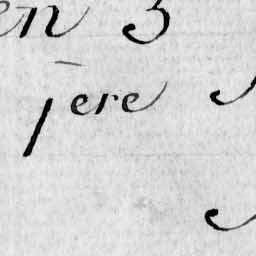 en 3
1ere